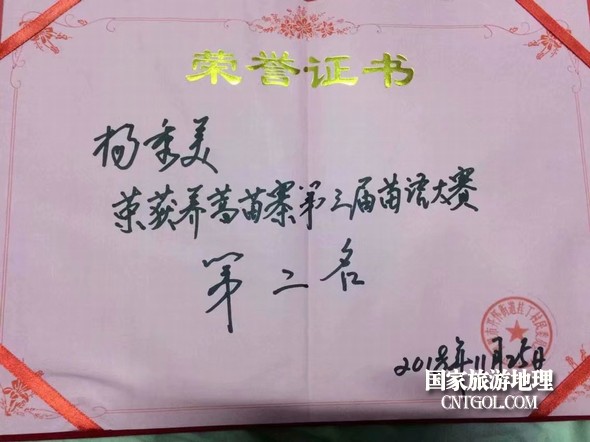 荣誉证书
杨秀美
荣获养蒿苗寨第三届苗语大赛
第二名
2018年11月25日
国家旅游地理
CNTGOL.COM